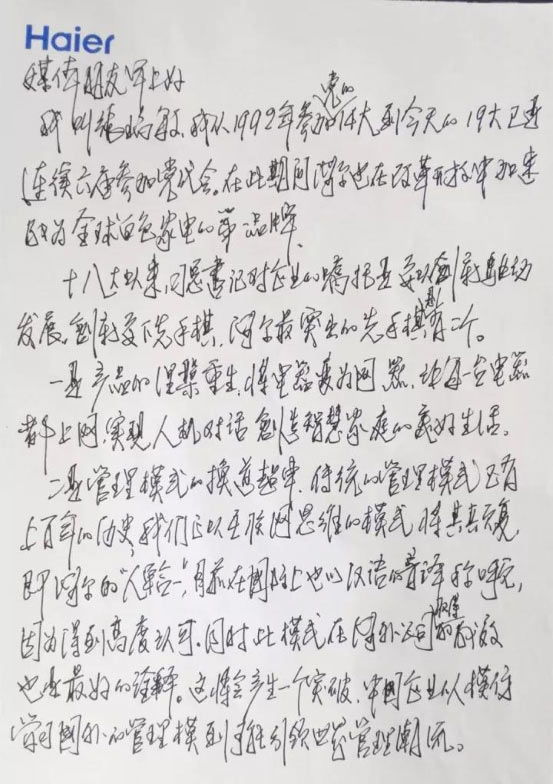 Haier
媒体朋友早上好
我叫张瑞敏,我从1992年参加党的14大到今天的19大已是
连续六届参加党代会。在此期间海尔也在改革开放中加速
成为全球白色家电的第一品牌。
十八大以来,习总书记对企业的嘱托是要以创新驱动
发展,创新要下先手棋,海尔最突出的先手棋是有二个。
一是产品的涅槃重生,将电器变为网器,让每一台电器
都上网,实现人机对话创造智慧家庭的美好生活。
二是管理模式的换道超车,传统的管理模式已有
上百年的历史,我们正以互联网思维的模式将其颠复,
即海尔的"人单合一",目前在国际上也以汉语的音译称呼它,
因为得到高度认可。同时此模式在海外公司取得的成效
也是最好的诠释。这将会产生一个突破,中国企业从模仿
学习国外的管理模式到有能引领世界管理潮流。